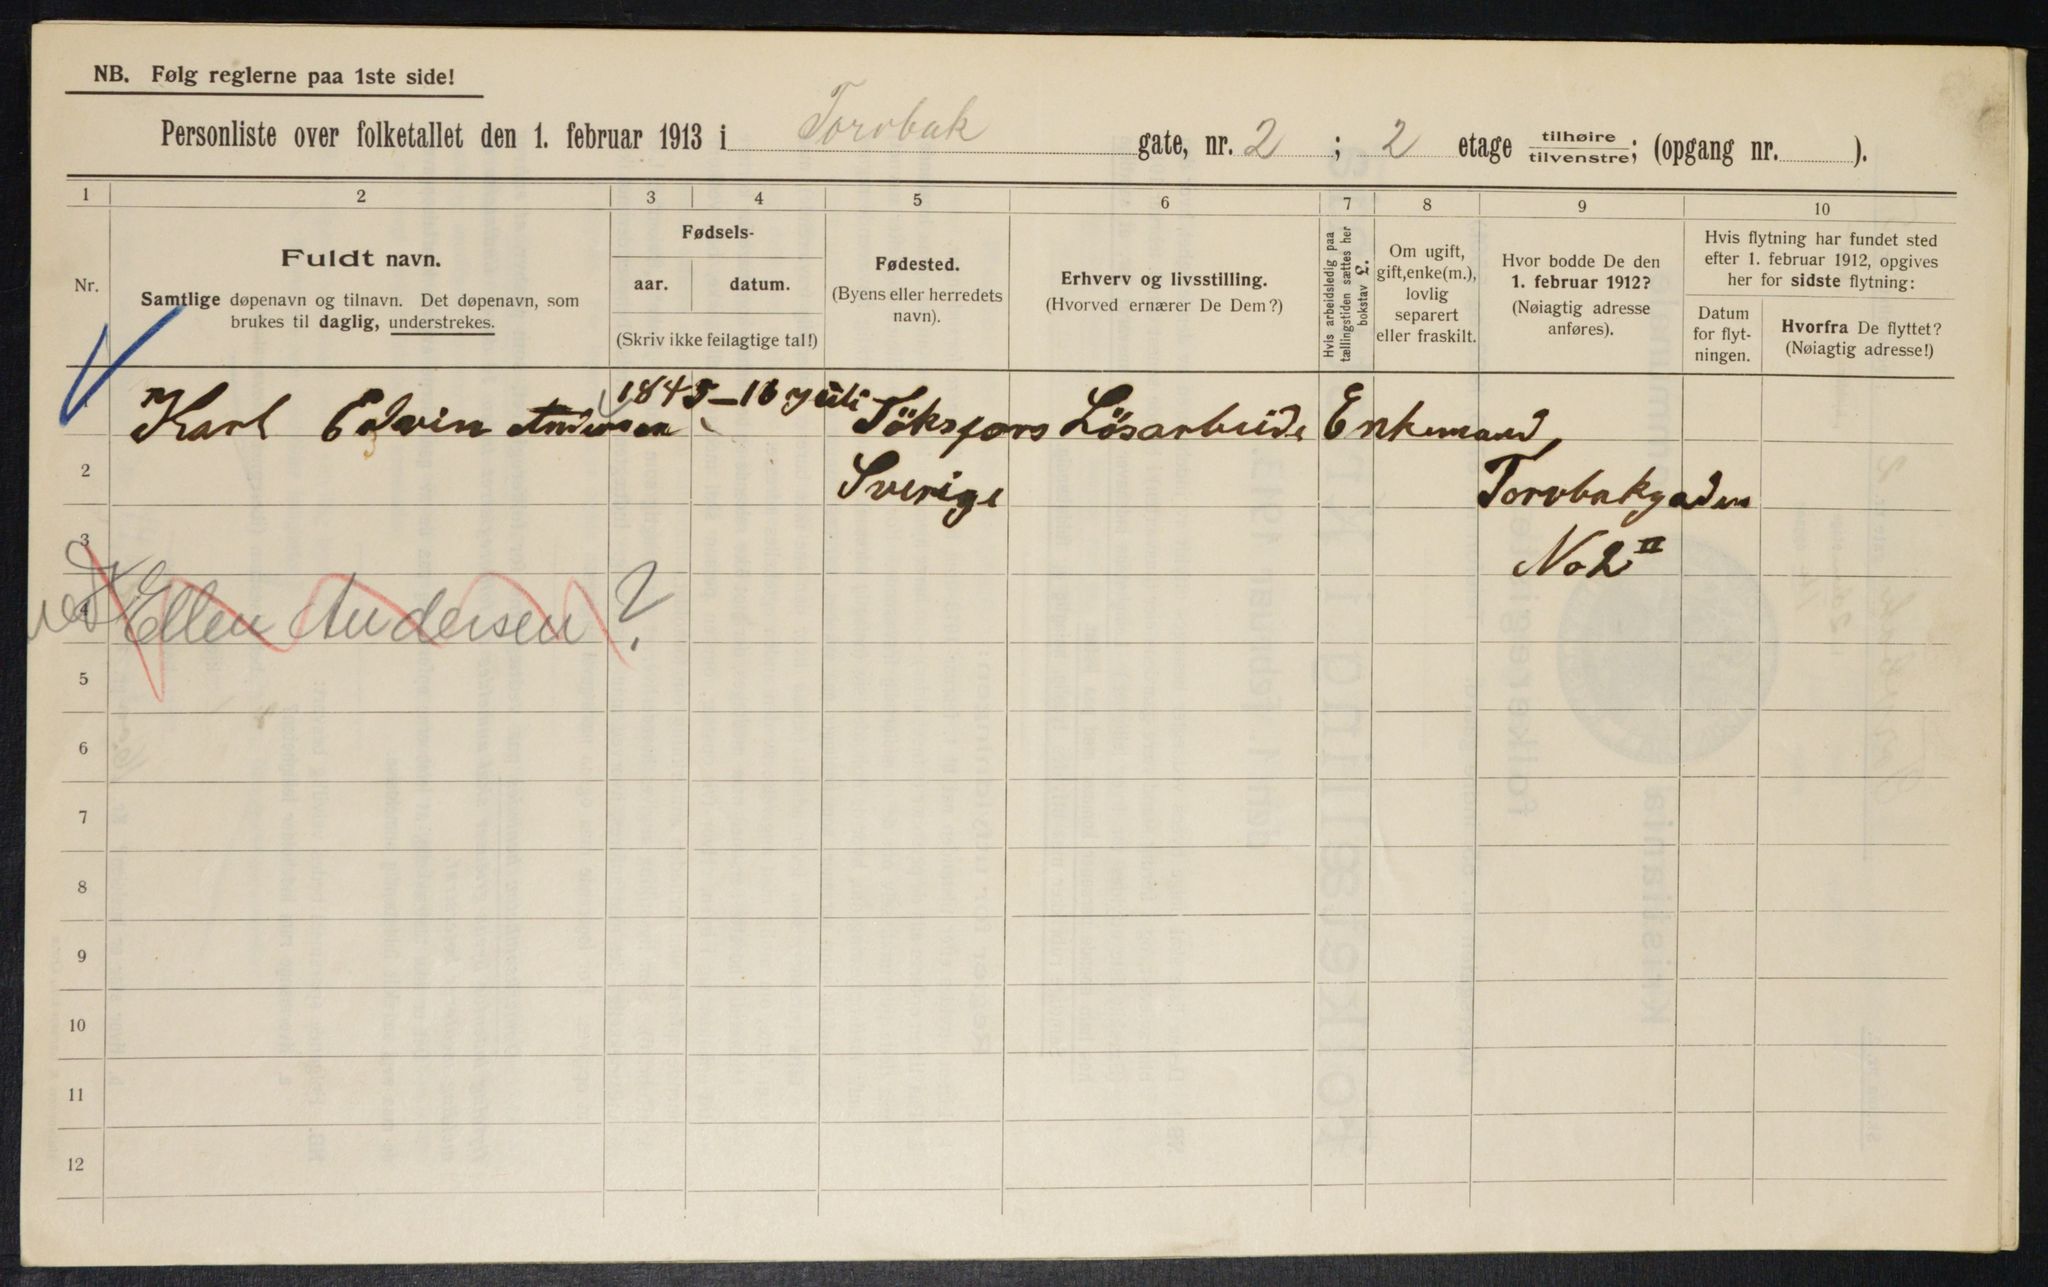 NB. Følg reglerne paa 1ste side!
Personliste over folketallet den 1. februar 1913 i Torvbak gate, nr. 2 ; 2 etage tilhøire/tilvenstre; (opgang nr. ).
1 2 3 4 5 6 7 8 9 10
Nr.
Fuldt navn.
Samtlige døpenavn og tilnavn. Det døpenavn, som
brukes til daglig, understrekes.
Fødsels-
aar. datum.
(Skriv ikke feilagtige tal!)
Fødested.
(Byens eller herredets
navn).
Erhverv og livsstilling.
(Hvorved ernærer De Dem?)
Hvis arbeidsledig paa
tællingstiden sættes her
bokstav L.
Om ugift,
gift, enke(m.),
lovlig
separert
eller fraskilt.
Hvor bodde De den
1. februar 1912?
(Nøiagtig adresse
anføres).
Hvis flytning har fundet sted
efter 1. februar 1912, opgives
her for sidste flytning:
Datum
for flyt-
ningen.
Hvorfra De flyttet?
(Nøiagtig adresse!)
1 Karl Edvin Andersen 1845 - 16 Juli Töksfors Lösarbeide Enkemand,
2 Sverige Torvbakgaden
3 No 2 II
4 Ellen Andersen ?
5
6
7
8
9
10
11
12